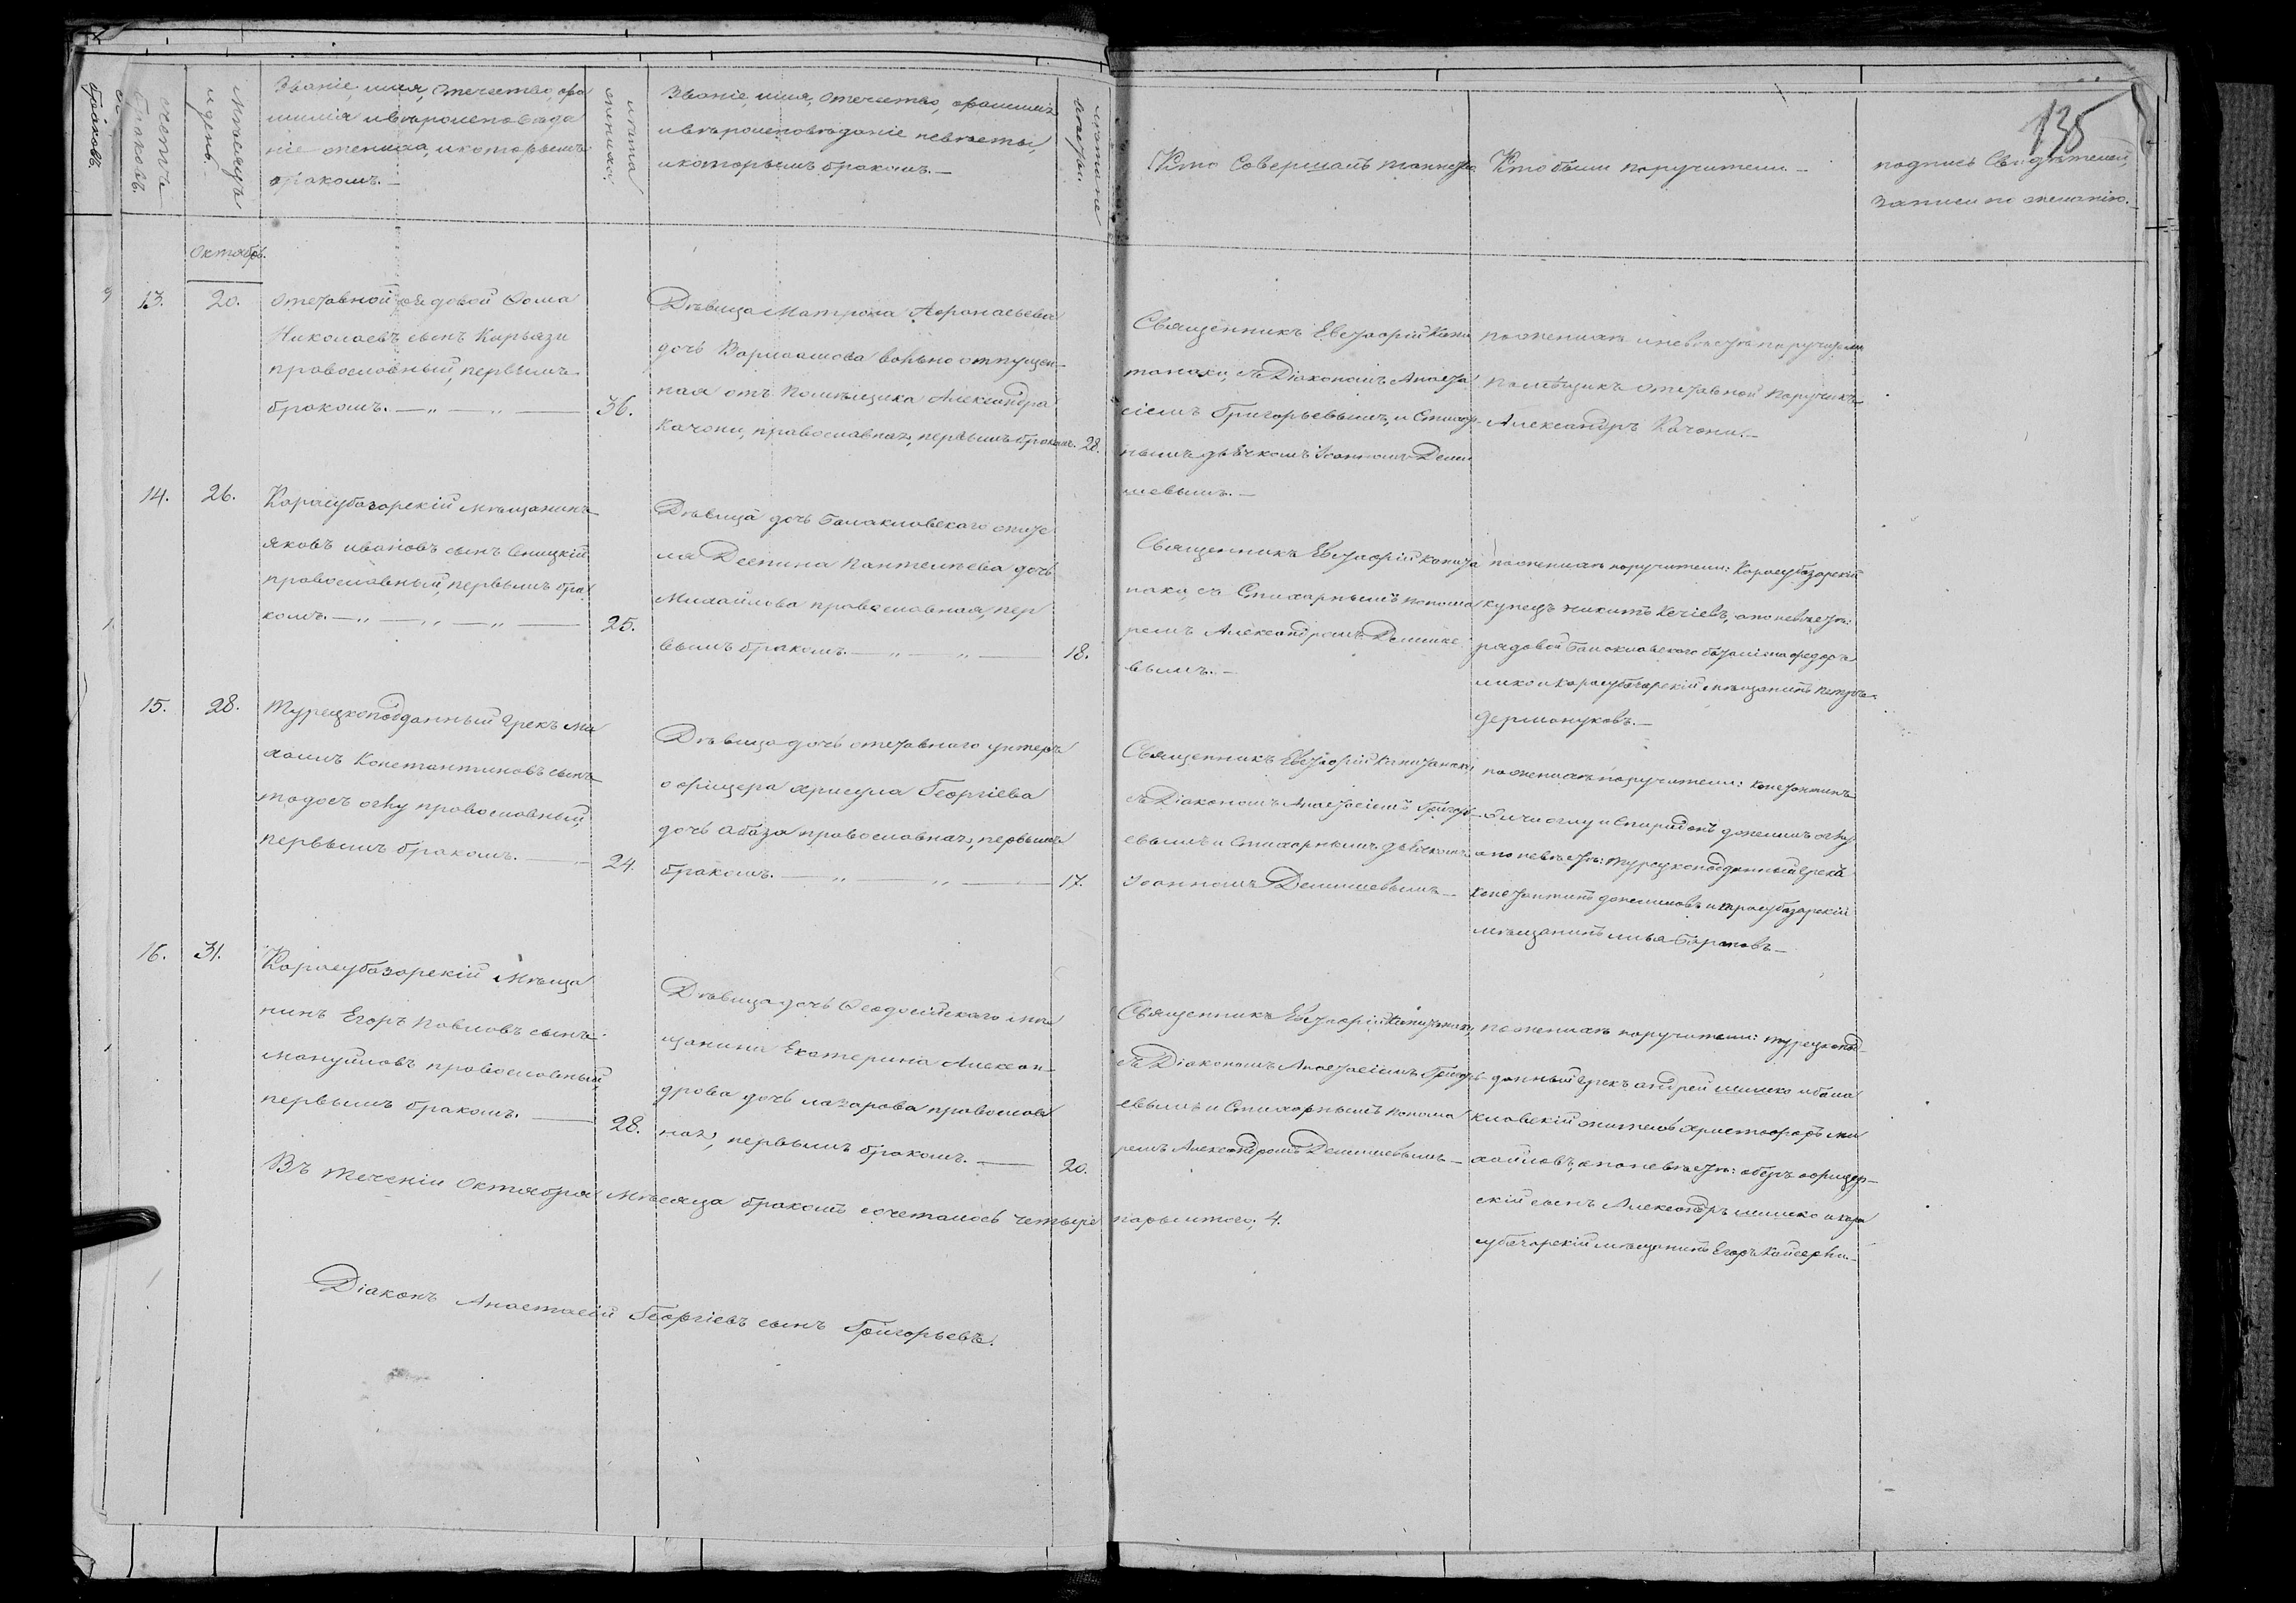 135
счетъ браковъ.
Мѣсяцъ и день.
Званіе, имя, отечество, фа
милія и вѣроисповѣда
ніе жениха, и которымъ
бракомъ.—
лѣта жениха.
Званіе, имя, отечество, фамилія
и вѣроисповѣданіе невѣсты,
и которымъ бракомъ.—
лѣта невѣсты.
Кто совершалъ таинство
Кто были поручители.—
подпись Свидѣтелей,
записи по желанію.—
Октябрь.
13. 20.
отставной рядовой Ѳома
Николаевъ сынъ Кирьязи
православный, первымъ
бракомъ. — „ — „ — 36.
Дѣвица Матрона Афонасьева
дочь Вармашова вольно отпущен-
ная отъ Помѣщика Александра
Качони, православная, первымъ бракомъ. 28.
Священникъ Евстафій Капи
танаки, съ Діакономъ Анаста
сіемъ Григорьевымъ, и Стихар-
нымъ дьячкомъ Іоанномъ Деми
шевымъ.—
по женихѣ и невѣстѣ поручитель
помѣщикъ отставной поручикъ
Александръ Качони.—
14. 26.
Карасубазарскій мѣщанинъ
Яковъ Ивановъ сынъ Сницкій
православный, первымъ бра
комъ. — „ — „ — „ — 25.
Дѣвица дочь Балаклавского жите
ля Деспина Пантелѣева дочь
Михайлова православная, пер
вымъ бракомъ. — „ — „ — 18.
Священникъ Евстафій Капита
наки, съ Стихарнымъ понома
ремъ Александромъ Демише
вымъ.—
по женихѣ поручители: Карасубазарскій
купецъ Никита Кечіевъ, а по невѣстѣ:
рядовой Балаклавского баталіона Федоръ
лико и карасубазарскій мѣщанинъ Петръ
Дермануковъ.—
15. 28.
Турецкоподданный Грекъ Ми
хаилъ Константиновъ сынъ
тодосъ оглу православный,
первымъ бракомъ. — 24.
Дѣвица дочь отставного унтеръ
офицера Хрисула Георгіева
дочь Абаза православная, первымъ
бракомъ. — „ — „ — 17.
Священникъ Евстафій Капитанаки
съ Діакономъ Анастасіемъ Григорь-
евымъ и Стихарнымъ дьячкомъ
Іоанномъ Демишевымъ—
по женихѣ поручители: Константинъ
оглу и Спиридонъ оглу
а по невѣстѣ: турецкоподданный Грекъ
Константинъ и карасубазарскій
мѣщанинъ Илья Барановъ—
16. 31.
Карасубазарскій Мѣща
нинъ Егоръ Павловъ сынъ
Мануиловъ православный,
первымъ бракомъ. — 28.
Дѣвица дочь Ѳеодосійского мѣ
щанина Екатерина Алексан-
дрова дочь Лазарова православ
ная, первымъ бракомъ. — 20.
Священникъ Евстафій Капитанаки,
съ Діакономъ Анастасіемъ Григорь-
евымъ и Стихарнымъ понома
ремъ Александромъ Демишевымъ—
по женихѣ поручители: турецкопод-
данный Грекъ Андрей и бала
клавскій житель Христофоръ Ми
хайловъ, а по невѣстѣ: оберъ офицер-
скій сынъ Александръ и кара
субазарскій мѣщанинъ Егоръ
Въ теченіи Октября Мѣсяца бракомъ сочеталось четыре пары итого, 4.
Діаконъ Анастасій Георгіевъ сынъ Григорьевъ.